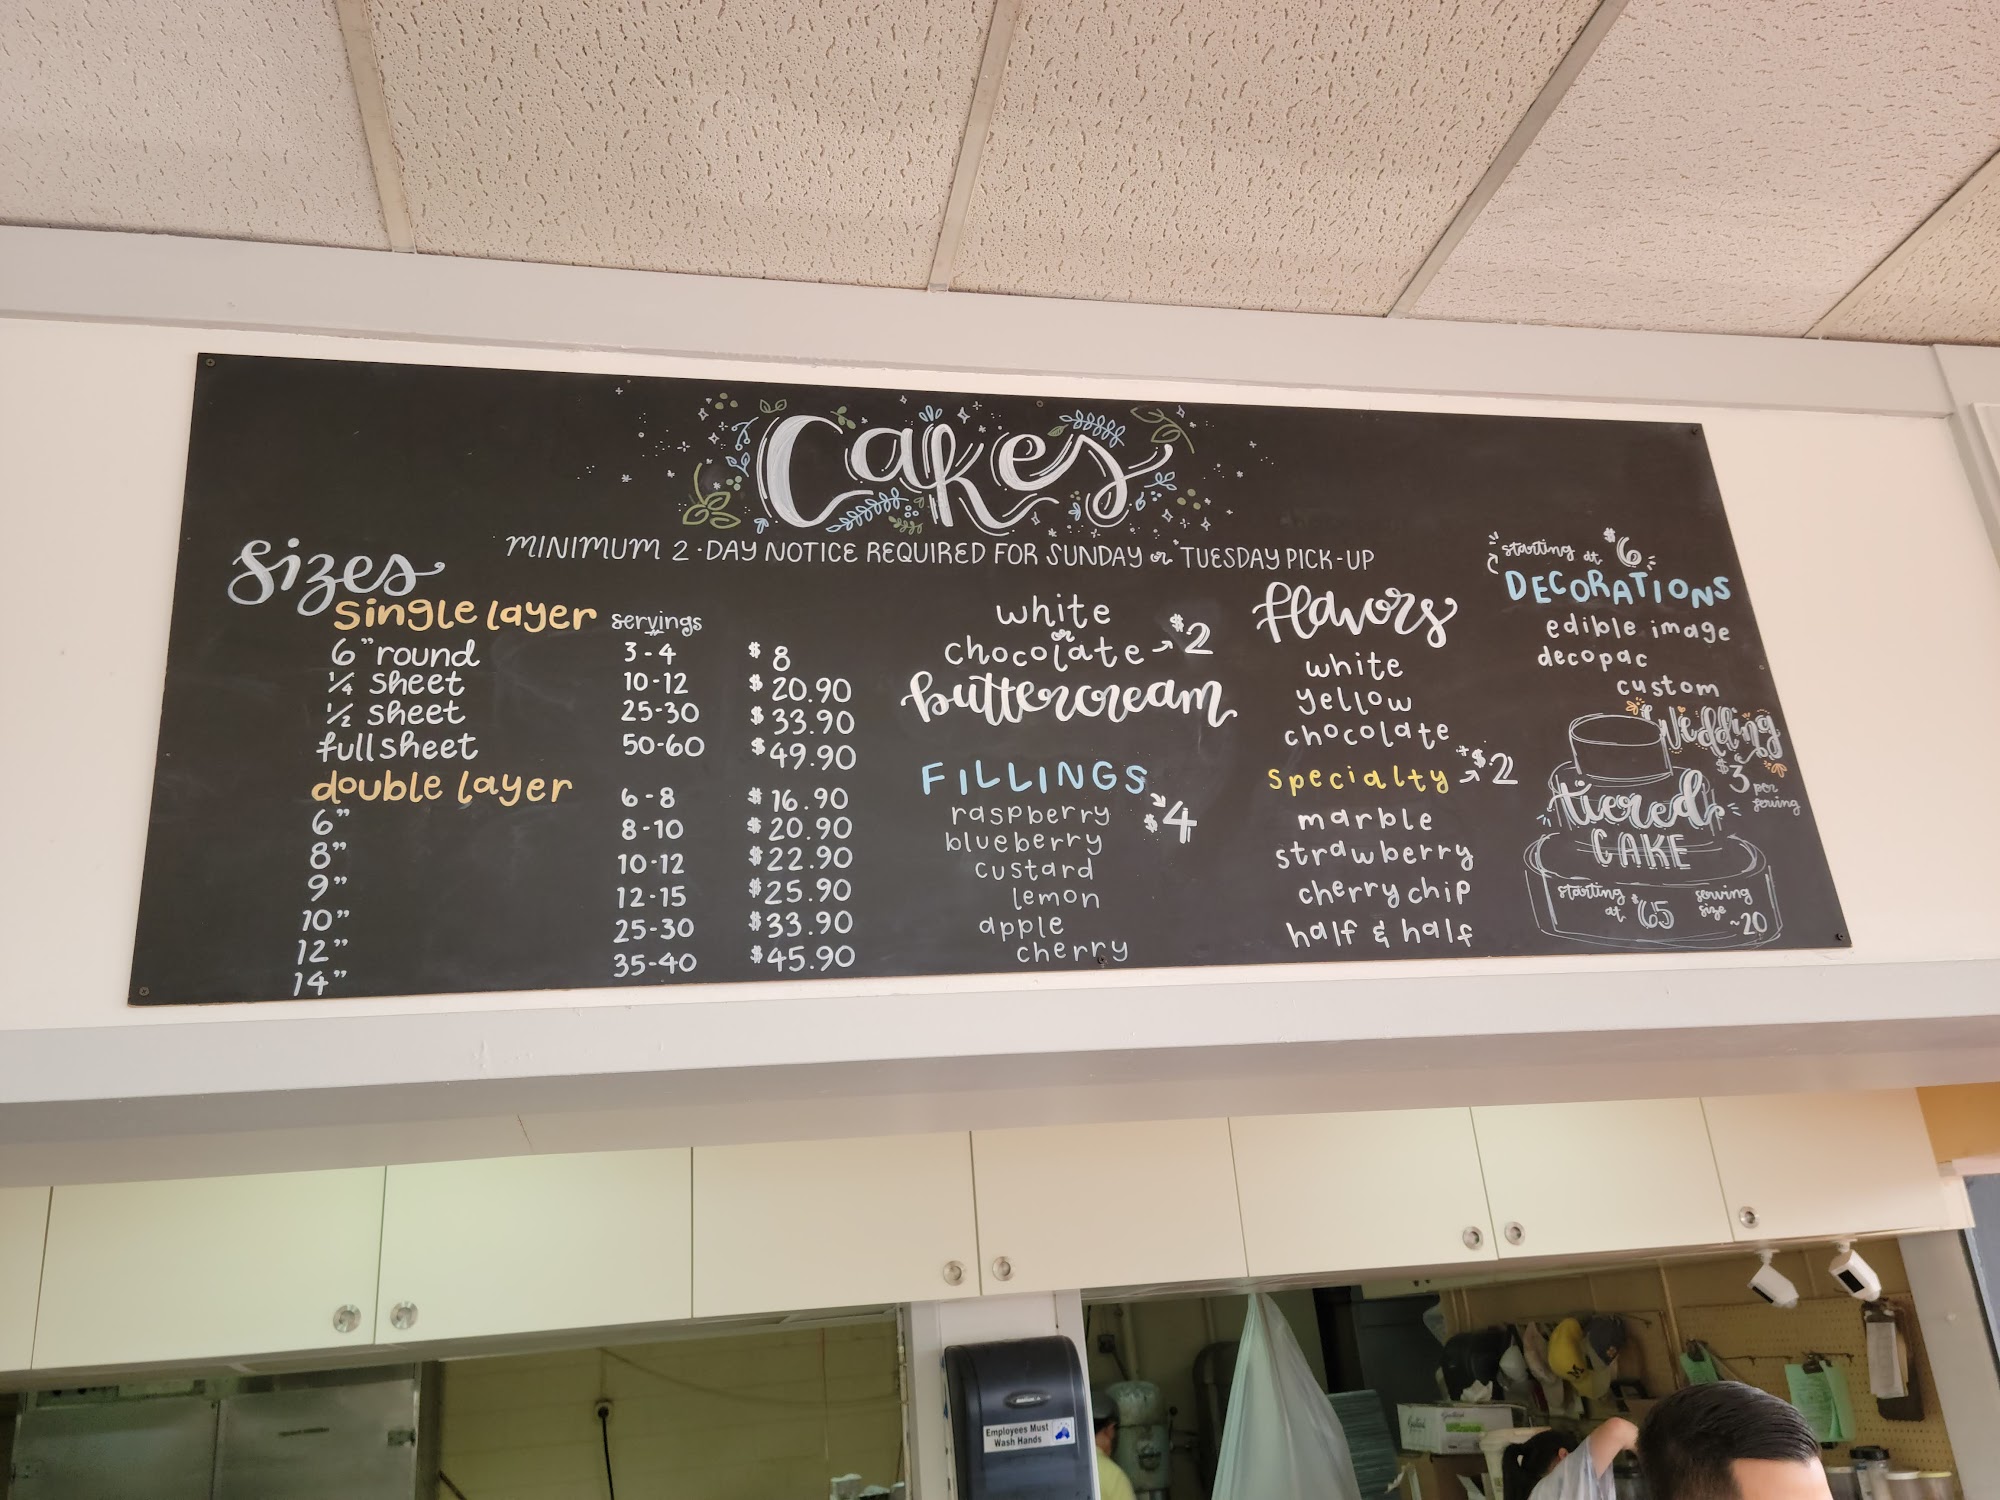 Cakes
MINIMUM 2-DAY NOTICE REQUIRED FOR SUNDAY or TUESDAY PICK-UP
Sizes
Single layer servings
6" round 3-4 $8
1/4 sheet 10-12 $20.90
1/2 sheet 25-30 $33.90
full sheet 50-60 $49.90
double layer
6" 6-8 $16.90
8" 8-10 $20.90
9" 10-12 $22.90
10" 12-15 $25.90
12" 25-30 $33.90
14" 35-40 $45.90
white
or
chocolate → $2
buttercream
FILLINGS
$4
raspberry
blueberry
custard
lemon
apple
cherry
flavors
white
yellow
chocolate
specialty → +$2
marble
strawberry
cherry chip
half & half
starting at $6
DECORATIONS
edible image
decopac
custom
Wedding
$3 per serving
tiered
CAKE
starting at $65
serving size ~20
Employees Must
Wash Hands